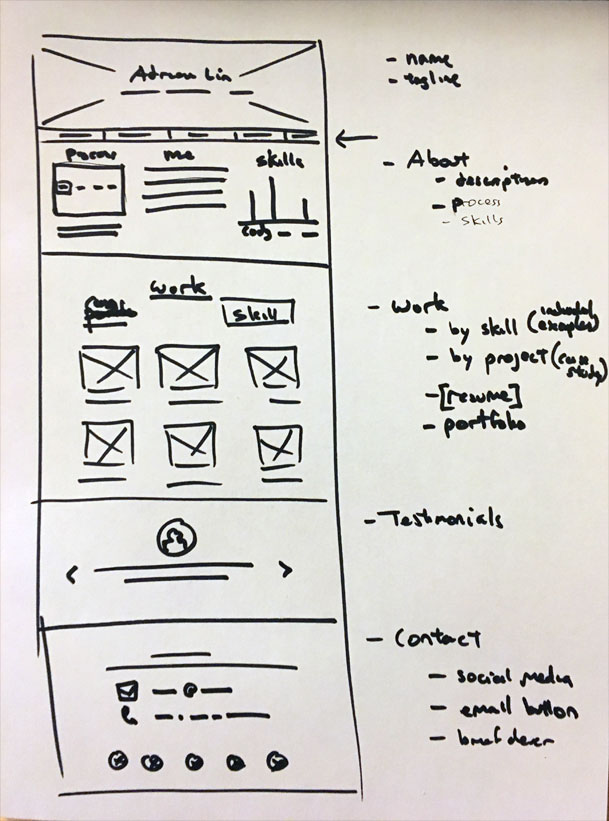 Adrian Lin
me
skills
work
skill
- name
- tagline
- About
- description
- process
- skills
- work
- by skill (
examples)
- by project (case
study)
- [resume]
- portfolio
- Testimonials
- Contact
- social media
- email button
- brief